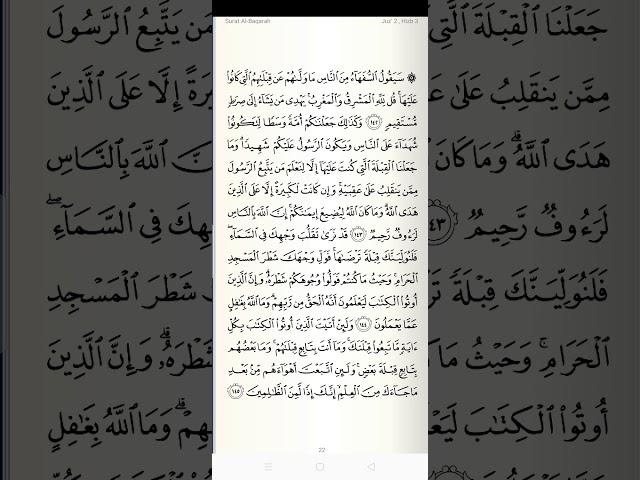 Surat Al-Baqarah Juz' 2 , Hizb 3
۞ سَيَقُولُ ٱلسُّفَهَآءُ مِنَ ٱلنَّاسِ مَا وَلَّىٰهُمْ عَن قِبْلَتِهِمُ ٱلَّتِى كَانُوا۟
عَلَيْهَا ۚ قُل لِّلَّهِ ٱلْمَشْرِقُ وَٱلْمَغْرِبُ ۚ يَهْدِى مَن يَشَآءُ إِلَىٰ صِرَٰطٍ
مُّسْتَقِيمٍ ١٤٢ وَكَذَٰلِكَ جَعَلْنَٰكُمْ أُمَّةً وَسَطًا لِّتَكُونُوا۟
شُهَدَآءَ عَلَى ٱلنَّاسِ وَيَكُونَ ٱلرَّسُولُ عَلَيْكُمْ شَهِيدًا ۗ وَمَا
جَعَلْنَا ٱلْقِبْلَةَ ٱلَّتِى كُنتَ عَلَيْهَآ إِلَّا لِنَعْلَمَ مَن يَتَّبِعُ ٱلرَّسُولَ
مِمَّن يَنقَلِبُ عَلَىٰ عَقِبَيْهِ ۚ وَإِن كَانَتْ لَكَبِيرَةً إِلَّا عَلَى ٱلَّذِينَ
هَدَى ٱللَّهُ ۗ وَمَا كَانَ ٱللَّهُ لِيُضِيعَ إِيمَٰنَكُمْ ۚ إِنَّ ٱللَّهَ بِٱلنَّاسِ
لَرَءُوفٌ رَّحِيمٌ ١٤٣ قَدْ نَرَىٰ تَقَلُّبَ وَجْهِكَ فِى ٱلسَّمَآءِ ۖ
فَلَنُوَلِّيَنَّكَ قِبْلَةً تَرْضَىٰهَا ۚ فَوَلِّ وَجْهَكَ شَطْرَ ٱلْمَسْجِدِ
ٱلْحَرَامِ ۚ وَحَيْثُ مَا كُنتُمْ فَوَلُّوا۟ وُجُوهَكُمْ شَطْرَهُۥ ۗ وَإِنَّ ٱلَّذِينَ
أُوتُوا۟ ٱلْكِتَٰبَ لَيَعْلَمُونَ أَنَّهُ ٱلْحَقُّ مِن رَّبِّهِمْ ۗ وَمَا ٱللَّهُ بِغَٰفِلٍ
عَمَّا يَعْمَلُونَ ١٤٤ وَلَئِنْ أَتَيْتَ ٱلَّذِينَ أُوتُوا۟ ٱلْكِتَٰبَ بِكُلِّ
ءَايَةٍ مَّا تَبِعُوا۟ قِبْلَتَكَ ۚ وَمَآ أَنتَ بِتَابِعٍ قِبْلَتَهُمْ ۚ وَمَا بَعْضُهُم
بِتَابِعٍ قِبْلَةَ بَعْضٍ ۚ وَلَئِنِ ٱتَّبَعْتَ أَهْوَآءَهُم مِّنۢ بَعْدِ
مَا جَآءَكَ مِنَ ٱلْعِلْمِ ۙ إِنَّكَ إِذًا لَّمِنَ ٱلظَّٰلِمِينَ ١٤٥
22